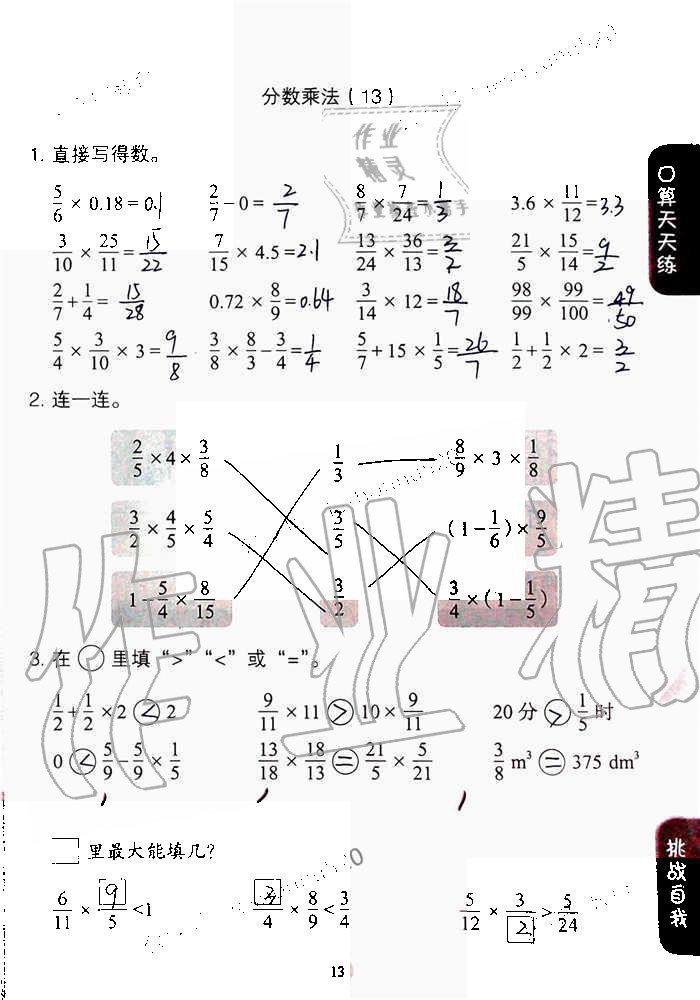 分数乘法(13)
1. 直接写得数。
5/6 × 0.18=0.1  2/7 − 0= 2/7  8/7 × 7/24 = 1/3  3.6 × 11/12 =3.3
3/10 × 25/11 = 15/22  7/15 × 4.5=2.1  13/24 × 36/13 = 3/2  21/5 × 15/14 = 9/2
2/7 + 1/4 = 15/28  0.72 × 8/9 =0.64  3/14 × 12 = 18/7  98/99 × 99/100 = 49/50
5/4 × 3/10 × 3= 9/8  3/8 × 8/3 − 3/4 = 1/4  5/7 + 15 × 1/5 = 26/7  1/2 + 1/2 × 2 = 3/2
2. 连一连。
2/5 × 4 × 3/8  1/3  8/9 × 3 × 1/8
3/2 × 4/5 × 5/4  3/5  (1− 1/6) × 9/5
1− 5/4 × 8/15  3/2  3/4 ×(1− 1/5)
3. 在 ○ 里填“>”“<”或“=”。
1/2 + 1/2 ×2 < 2  9/11 × 11 > 10 × 9/11  20 分 > 1/5 时
0 < 5/9 − 5/9 × 1/5  13/18 × 18/13 = 21/5 × 5/21  3/8 m³ = 375 dm³
□ 里最大能填几?
6/11 × 9/5 <1  3/4 × 8/9 < 3/4  5/12 × 3/2 > 5/24
13
口算天天练
挑战自我
作业精灵
作业精